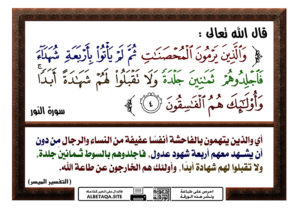 قال الله تعالى :
﴿ وَالَّذِينَ يَرْمُونَ الْمُحْصَنَاتِ ثُمَّ لَمْ يَأْتُوا بِأَرْبَعَةِ شُهَدَاءَ
فَاجْلِدُوهُمْ ثَمَانِينَ جَلْدَةً وَلَا تَقْبَلُوا لَهُمْ شَهَادَةً أَبَدًا ۚ
وَأُولَٰئِكَ هُمُ الْفَاسِقُونَ ٤ ﴾
سورة النور
أي والذين يتهمون بالفاحشة أنفسًا عفيفة من النساء والرجال من دون
أن يشهد معهم أربعة شهود عدول، فاجلدوهم بالسوط ثمانين جلدة،
ولا تقبلوا لهم شهادة أبدًا، وأولئك هم الخارجون عن طاعة الله.
(التفسير الميسر)
ALBETAQA.SITE